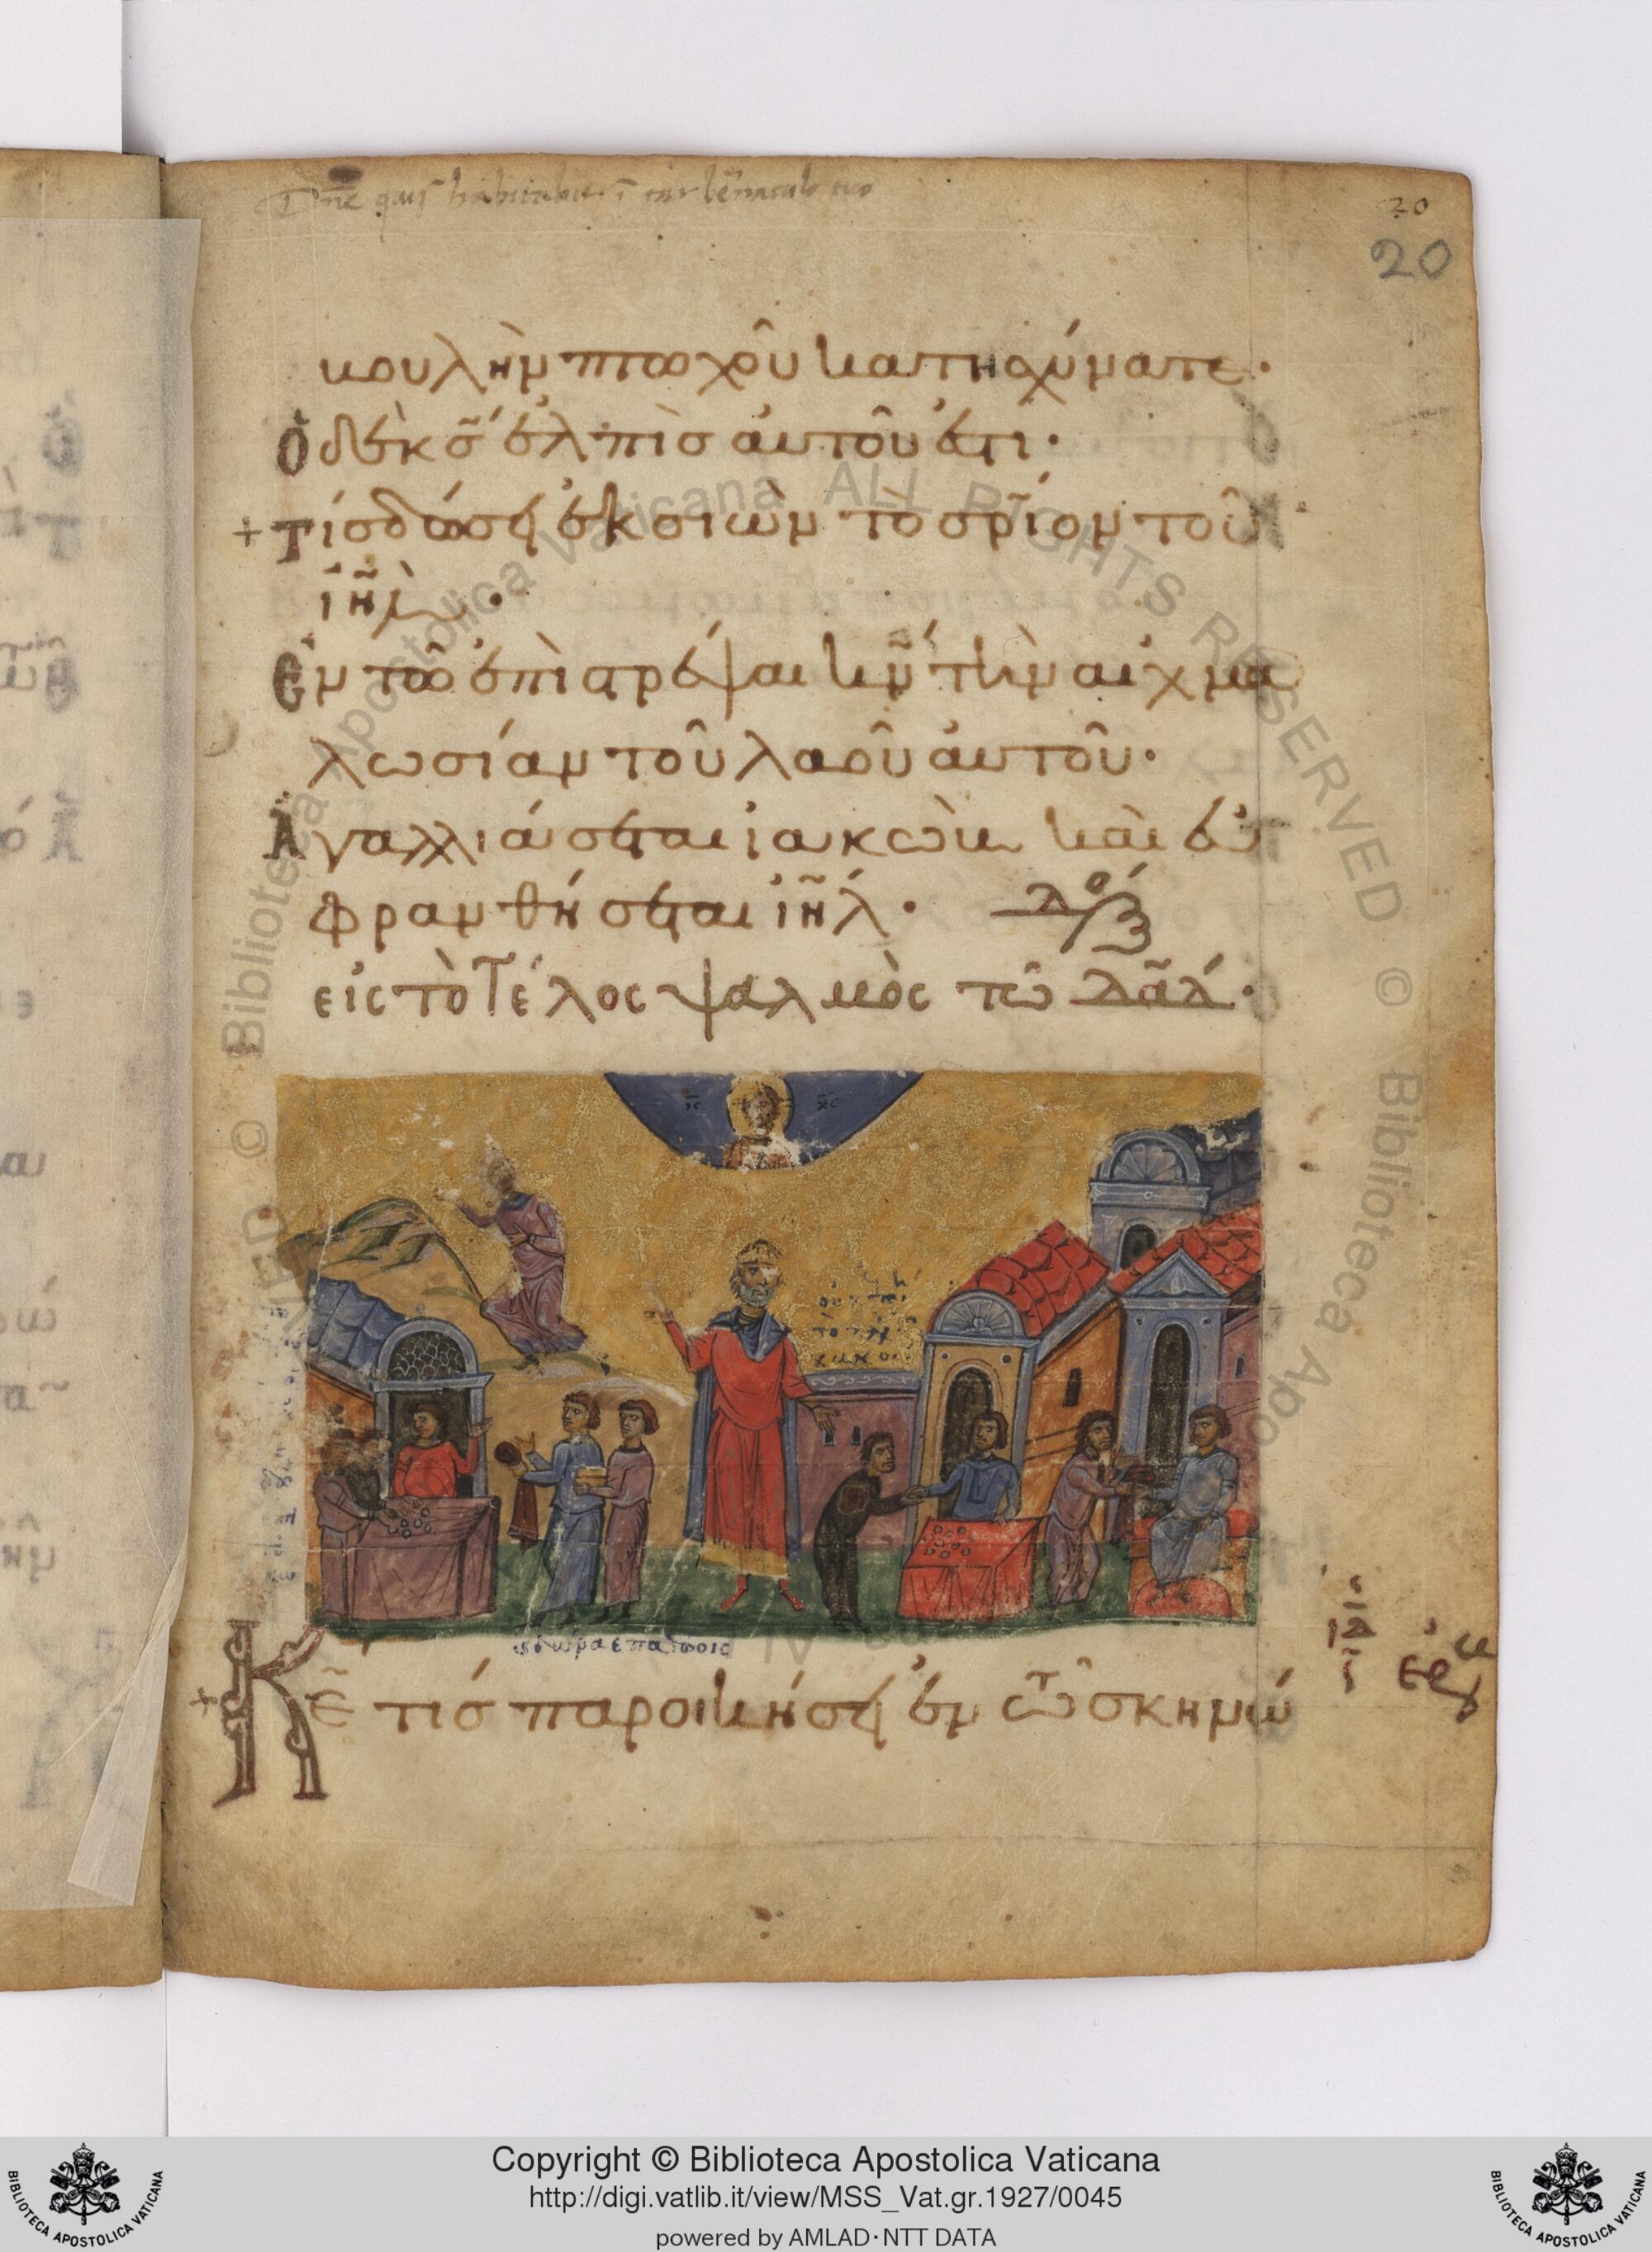 Dn̄e quis habitabit ī tabernaculo tuo
20
20
κουλὴν πτωχοῦ κατησχύνατε·
Ὁ δὲ κ̄ς ἐλπὶς αὐτοῦ ἐστι·
+ Τίς δώσει ἐκ σιὼν τὸ σρ̃ίον τοῦ
ἰῆλ·
Ἐν τῶ ἐπιστρέψαι κν̃ τὴν αἰχμα
λωσίαν τοῦ λαοῦ αὐτοῦ·
Ἀγαλλιάσεται ἰακὼβ καὶ εὐ
φρανθήσεται ἰῆλ·
εἰς τὸ Τέλος ψαλμὸς τῶ δᾶδ·
ις χς
δῶρα ἐπ ἀθώοις
+ Κ̄ε τίς παροικήσει ἐν τῶ σκηνώ
ιδ
Copyright © Biblioteca Apostolica Vaticana
http://digi.vatlib.it/view/MSS_Vat.gr.1927/0045
powered by AMLAD·NTT DATA
BIBLIOTECA APOSTOLICA VATICANA
BIBLIOTECA APOSTOLICA VATICANA
© Biblioteca Apostolica Vaticana ALL RIGHTS RESERVED © Biblioteca Apo